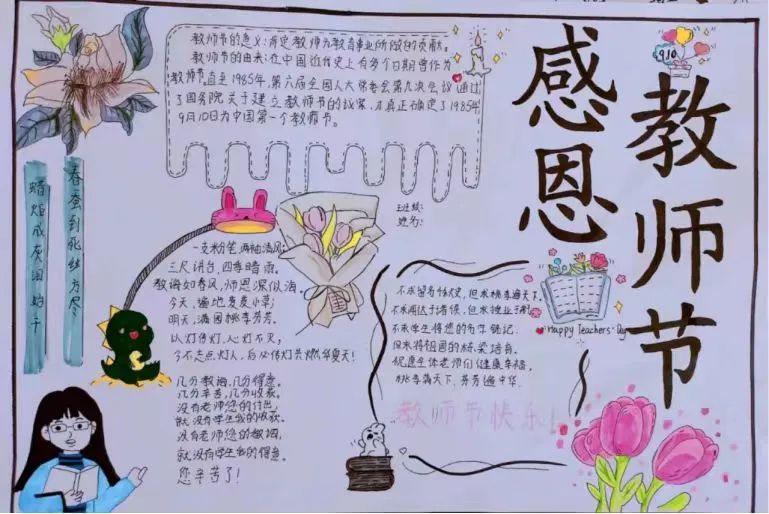 感恩
教师节
9.10
教师节的意义:肯定教师为教育事业所做的贡献。
教师节的由来:在中国近代史上有多个日期曾作为
教师节,直至1985年,第六届全国人大常委会第九次会议通过
了国务院关于建立教师节的议案,才真正确定了1985年
9月10日为中国第一个教师节。
春蚕到死丝方尽
蜡炬成灰泪始干
班级:
姓名:
一支粉笔,两袖清风;
三尺讲台,四季晴雨。
教诲如春风,师恩深似海。
今天,遍地麦麦小草;
明天,满园桃李芬芳。
以灯传灯,心灯不灭,
今布点点灯人,后必传灯共燃华夏天!
几分教诲,几分得意。
几分辛苦,几分收获。
没有老师您的付出,
就没有学生我的收获。
没有老师您的教诲,
就没有学生我的得意。
您辛苦了!
不求留有佳史,但求桃李遍天下,
不求闻达于诸侯,但求授业于
不求学生将您的名字铭记,
但求将祖国的栋梁培育。
祝愿全体老师们健康幸福,
桃李满天下,芬芳遍中华。
Happy Teachers' Day
教师节快乐!